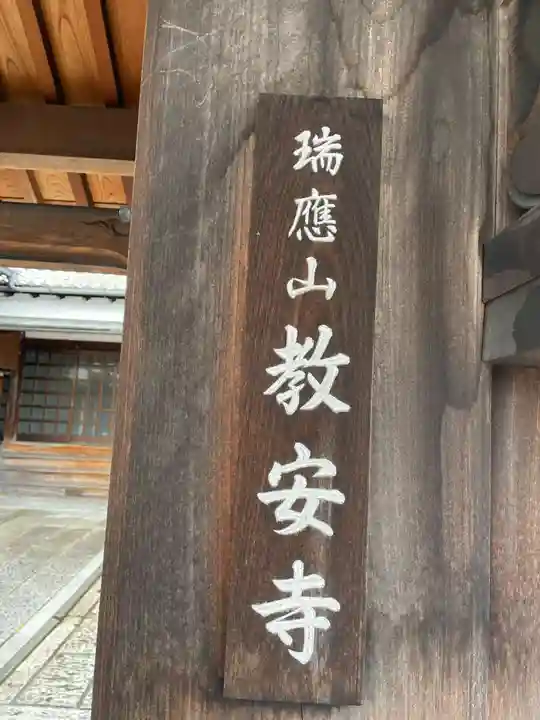 瑞應山教安寺